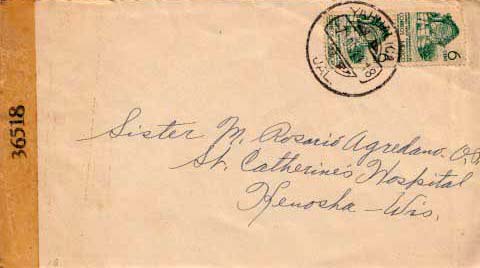 JAL.
6
36518
Sister M. Rosario Agredano. O.
St. Catherine's Hospital
Kenosha - Wis.